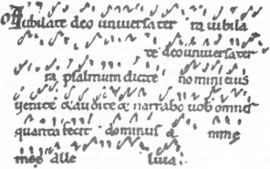 Iubilate deo universa ter ra iubila
te deo universa ter
ra psalmum dicite nomini eius
venite & audite & narrabo vob omnes
quanta fecit dominus a nime
meę alle luia